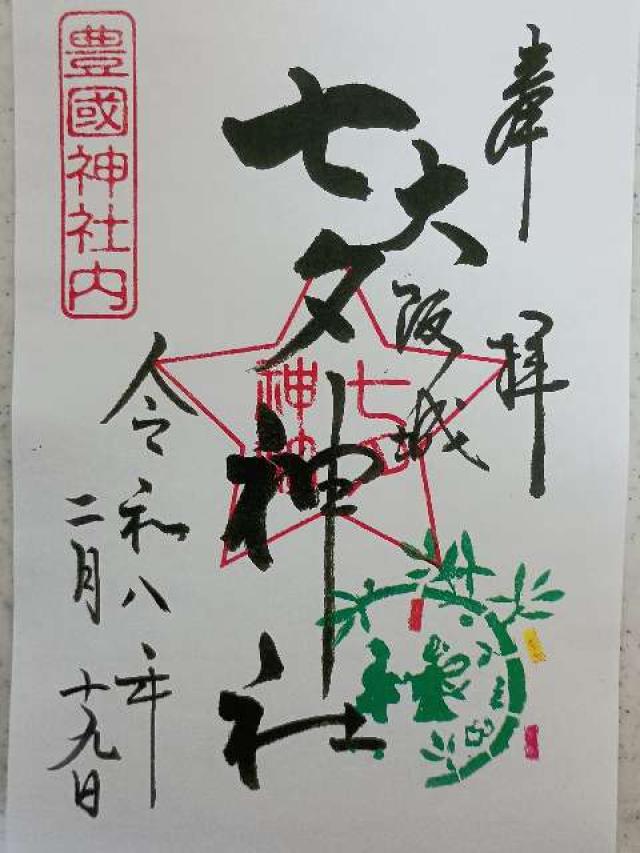 奉拝
大阪城
七夕神社
七夕
神社
豊國神社内
令和八年
二月十九日